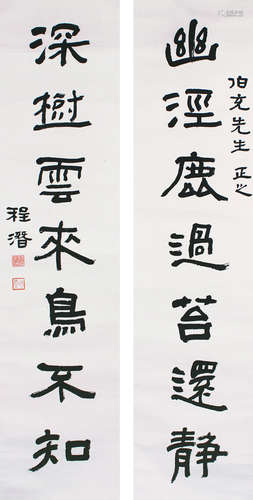 伯克先生 正之
幽涇鹿過苔還靜
深樹雲來鳥不知
程潛